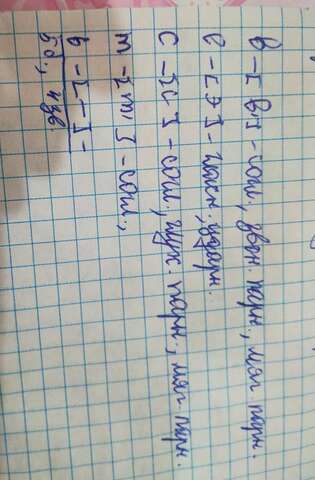 в - [ в ] - согл, звон. парн, мяг. парн.
е - [ э ] - гласн, ударн.
с - [ с ] - согл, глух. парн, мяг. парн.
т - [ т' ] - согл.,
ь - [ - ] -
5 б, 4 зв